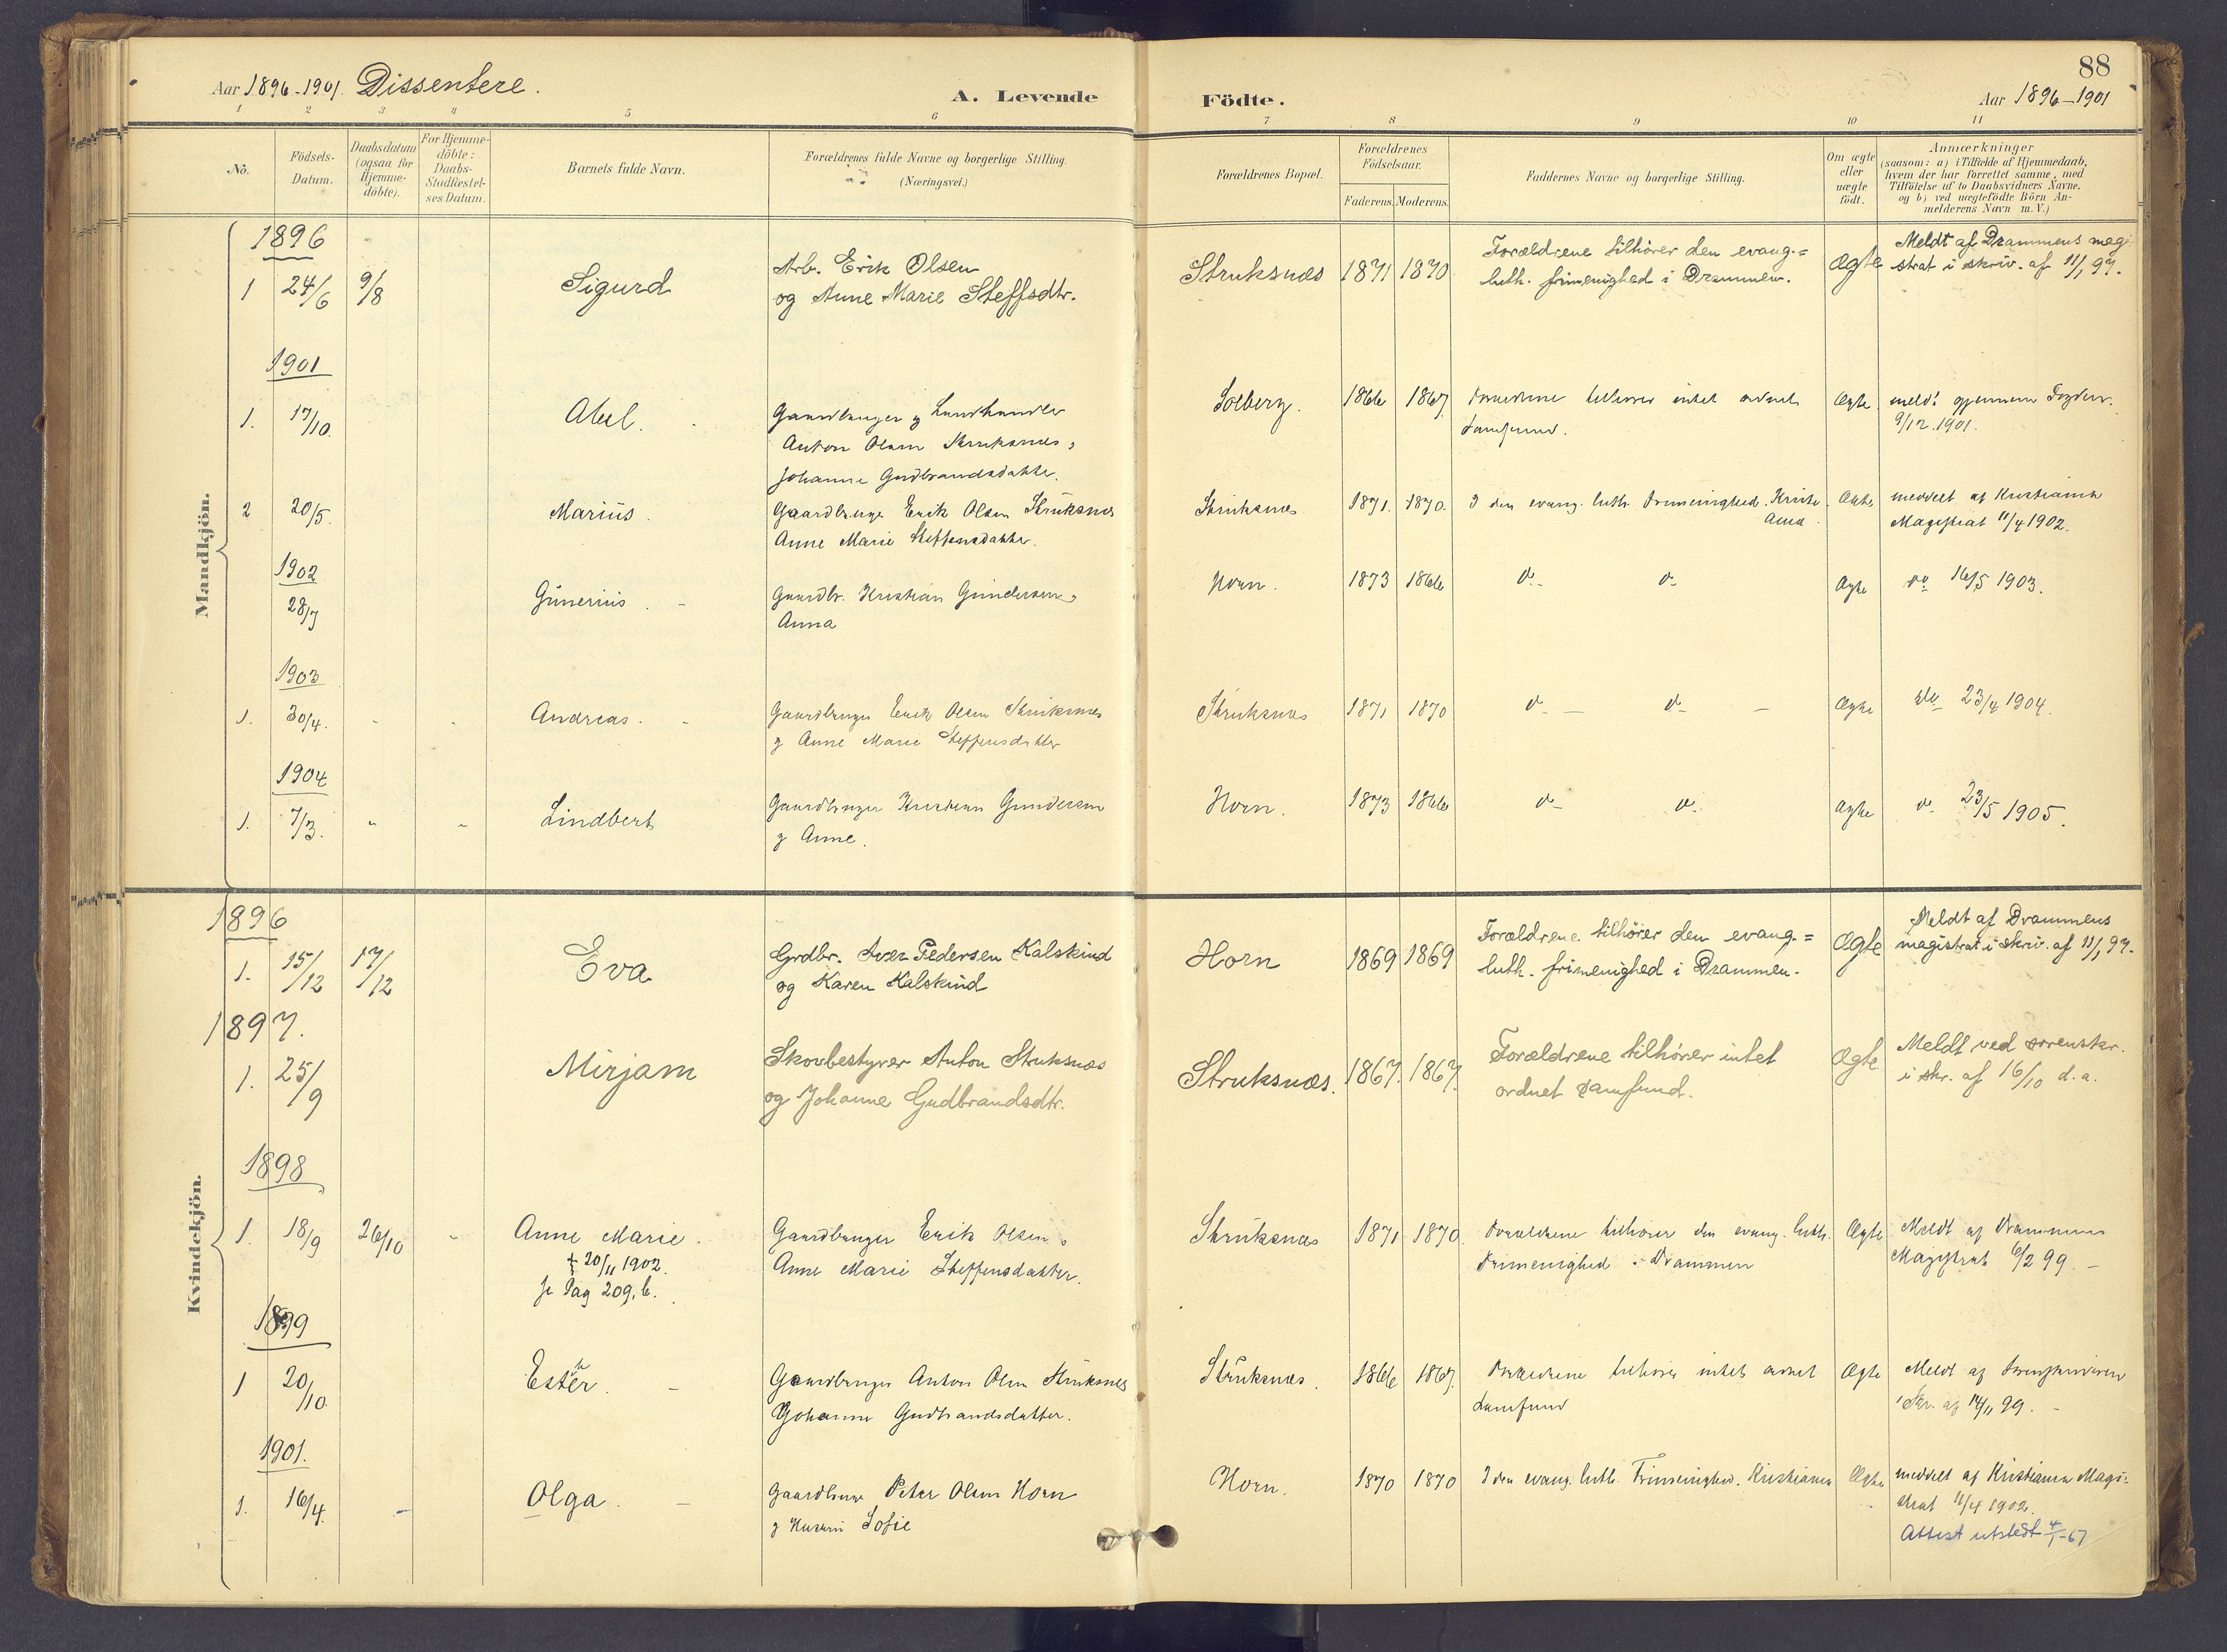 88
Aar 1896-1901. Dissentere. A. Levende Födte. Aar 1896-1901
1 2 3 4 5 6 7 8 9 10 11
No.
Födsels-Datum.
Daabsdatum (ogsaa for Hjemme-döbte).
For Hjemme-döbte: Daabs-Stadfæstel-ses Datum.
Barnets fulde Navn.
Forældrenes fulde Navne og borgerlige Stilling.
(Næringsvei.)
Forældrenes Bopæl.
Forældrenes Födselsaar.
Faderens. Moderens.
Faddernes Navne og borgerlige Stilling.
Om ægte eller uægte födt.
Anmærkninger
(saasom: a) i Tilfælde af Hjemmedaab,
hvem der har forrettet samme, med
Tilföielse af to Daabsvidners Navne.
og b) ved uægtefödte Börn An-
melderens Navn m.V.)
Mandkjön.
1896
1 24/6 9/8 Sigurd Arb. Erik Olsen Struksnæs 1871 1870 Forældrene tilhører den evang.= Ægte Meldt af Drammens magi
og Anne Marie Steffsdtr. luth. frimenighed i Drammen. strat i skriv. af 11/1 97.
1901
1. 17/10. Abel. Gaardbruger og Landhandler Solberg. 1866 1867 Forældrene tilhører intet ordnet Ægte meldt gjennem Fogden.
Anton Olsen Struksnes, samfund. 9/12.1901.
Johanne Gudbrandsdatter.
2 20/5. Marius. Gaardbruger Erik Olsen Struksnes Struksnes 1871. 1870. I den evang. luth. Frimenighed. Kristi- Ægte meddelt af Kristiania
Anne Marie Steffensdatter. ania Magistrat 11/4 1902.
1902
28/7 Gunerius. Gaardbr. Kristian Gundersen, Horn. 1873 1866 do do Ægte do 16/5 1903.
Anna
1903
1. 30/4. Andreas. Gaardbruger Erik Olsen Struksnes Struksnæs 1871 1870 do do Ægte do 23/4 1904.
og Anne Marie Steffensdatter
1904
1. 7/3. Lindbert Gaardbruger Kristian Gundersen Horn. 1873 1866 do do Ægte do 23/5 1905.
og Anne.
Kvindekjön.
1896
1. 15/12 17/12 Eva Grdbr. Iver Pedersen Kalskind Horn 1869 1869 Forældrene tilhører den evang.= Ægte Meldt af Drammens
og Karen Kalskind luth. frimenighed i Drammen. magistrat i skriv. af 11/1 97.
1897.
1. 25/9 Mirjam Skovbestyrer Anton Struksnæs Struksnæs. 1867. 1867. Forældrene tilhører intet Ægte Meldt ved sorenskr.
og Johanne Gudbrandsdtr. ordnet samfund. i skr. af 16/10 d.a.
1898
1. 18/9 26/10 Anne Marie. Gaardbruger Erik Olsen, Struksnæs 1871 1870. Forældrene tilhører den evang. luth. Ægte Meldt af Drammens
† 20/11 1902. Anne Marie Steffensdatter. Frimenighed i Drammen Magistrat 6/2 99. -
se Pag 209, b.
1899
1 20/10 Esther. Gaardbruger Anton Olsen Struksnes Struksnæs. 1866 1867. Forældrene tilhører intet ordnet Ægte Meldt af Sorenskriveren
Johanne Gudbrandsdatter. samfund i Skr. af 14/11 99. -
1901.
1. 16/4. Olga. Gaardbruger Peter Olsen Horn Horn. 1870 1870 I den evang. luth. Frimenighed. Kristiania Ægte meddelt af Kristiania Magi-
og Hustru Sofie strat 11/4 1902.
Attest utstedt 4/1-67